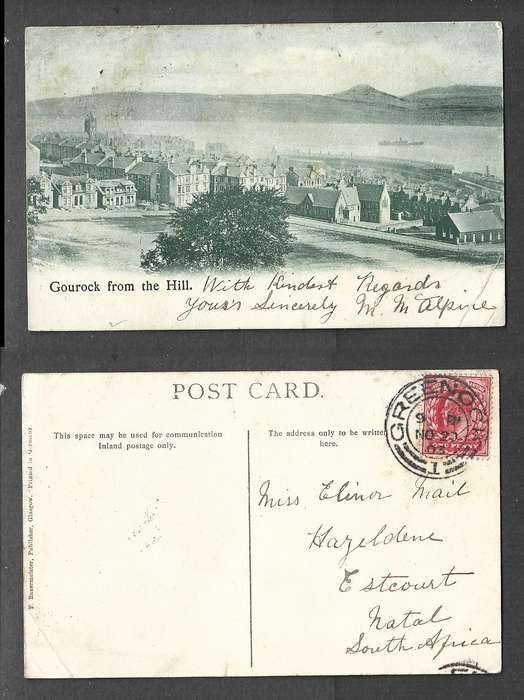 Gourock from the Hill. With Kindest Regards
Yours Sincerely M. McAlpine
POST CARD.
This space may be used for communication
Inland postage only.
The address only to be written
here.
GREENOCK
NO 20
1
ONE PENNY
Miss Elinor Mail
Hazeldene
Estcourt
Natal
South Africa
Publisher, Glasgow. Printed in Germany.